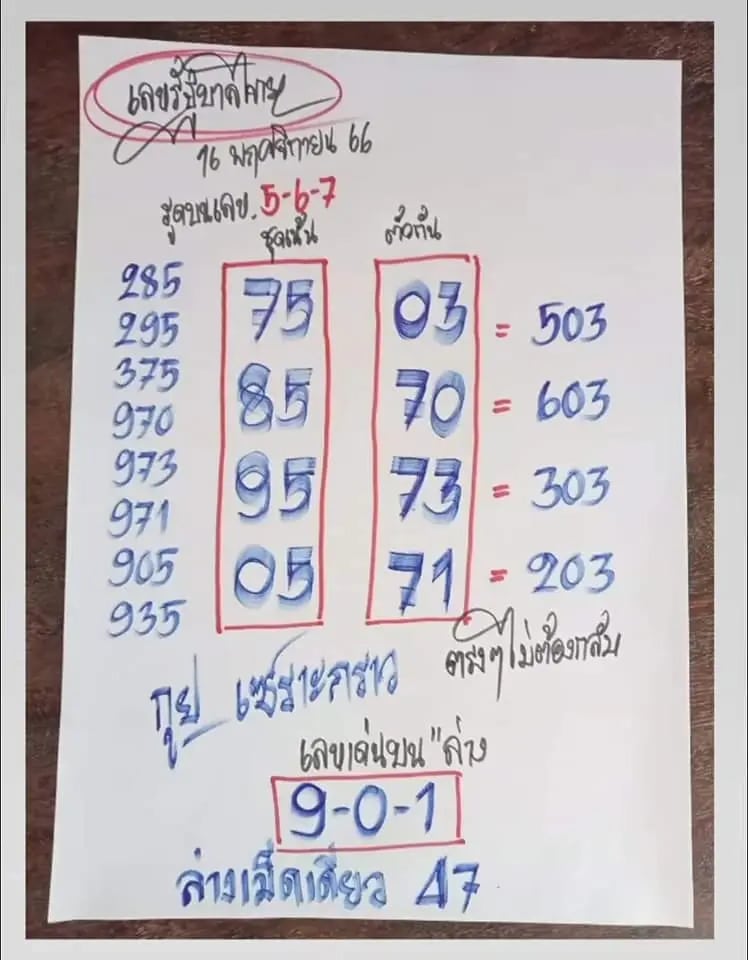 เลขรัฐบาลไทย
16 พฤศจิกายน 66
รูดบนเลข. 5-6-7
ชุดเน้น ตัวกัน
285
295
375
970
973
971
905
935
75
85
95
05
03 = 503
70 = 603
73 = 303
71 = 203
ตรงๆไม่ต้องกลับ
กูย เซราะกราว
เลขเด่นบน"ล่าง
9-0-1
ล่างเม็ดเดียว 47